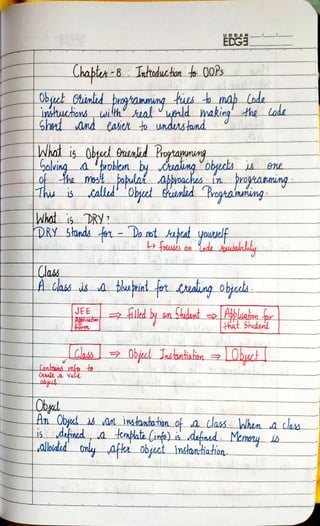 URBAN
EDGE
Chapter-8 : Introduction to OOPs
Object Oriented programming tries to map code
instructions with real world making the code
short and easier to understand.
What is Object Oriented Programming
Solving a problem by creating objects is one
of the most popular approaches in programming.
This is called Object Oriented Programming.
What is DRY?
DRY stands for - Do not repeat yourself
↳ focuses on Code reusability
Class
A class is a blueprint for creating objects.
JEE Application form ⇒ filled by an Student ⇒ Application for that Student
Class ⇒ Object Instantiation ⇒ Object
Contains info to
create a valid
object
Object
An Object is an instantiation of a class. When a class
is defined, a template (info) is defined. Memory is
allocated only after object instantiation.